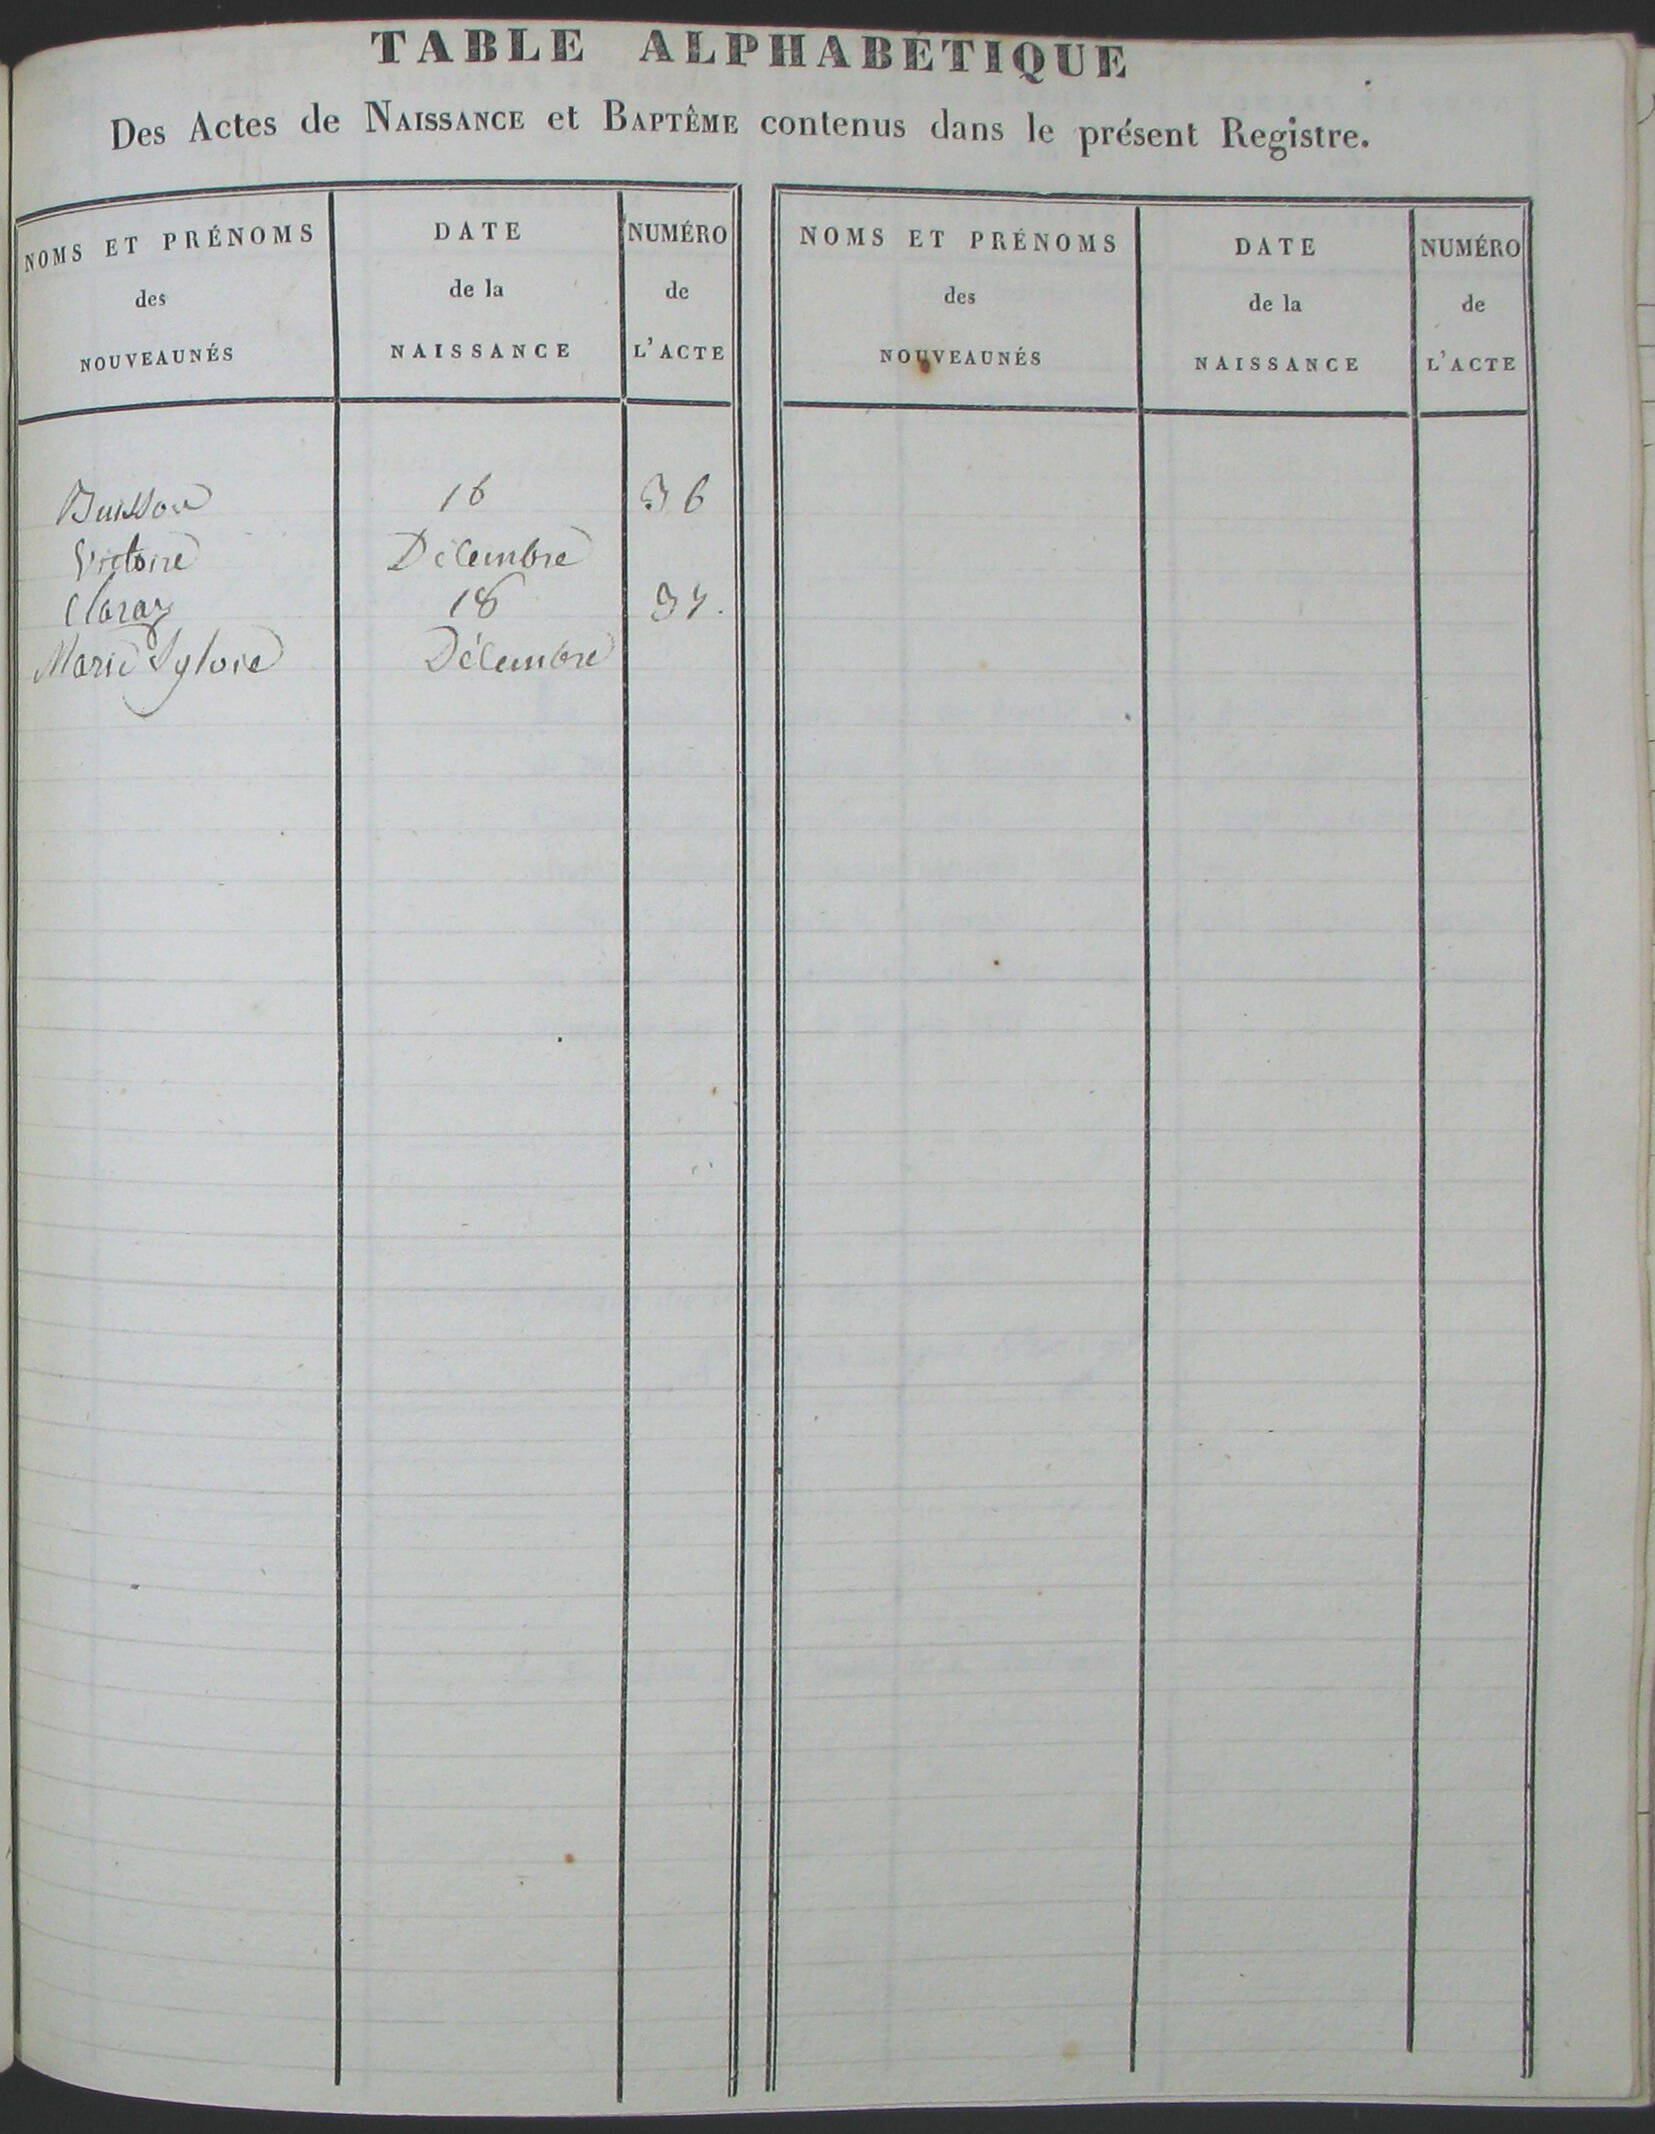 TABLE ALPHABÉTIQUE
Des Actes de NAISSANCE et BAPTÊME contenus dans le présent Registre.
NOMS ET PRÉNOMS
des
NOUVEAUNÉS
DATE
de la
NAISSANCE
NUMÉRO
de
L'ACTE
NOMS ET PRÉNOMS
des
NOUVEAUNÉS
DATE
de la
NAISSANCE
NUMÉRO
de
L'ACTE
Buisson 16 36
Victoire Décembre
Claraz 18 37.
Marie Sylvie Décembre